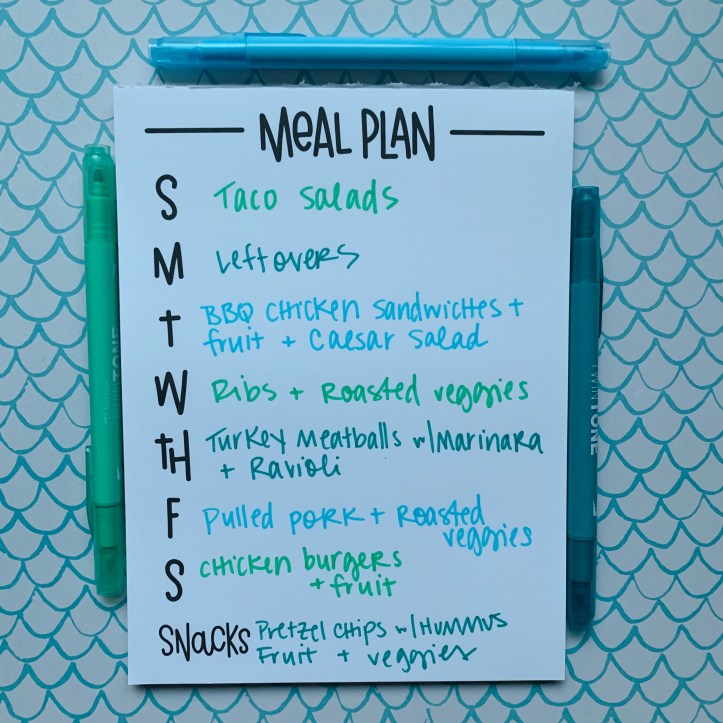 MeAL PLAN
S Taco Salads
M Leftovers
t BBQ CHicken Sandwiches +
fruit + Caesar Salad
W Ribs + Roasted veggies
tH Turkey Meatballs w/Marinara
+ Ravioli
F Pulled pork + Roasted
veggies
S Chicken burgers
+ fruit
SNacKS Pretzel Chips w/Hummus
Fruit + veggies
TWINTONE
TONE